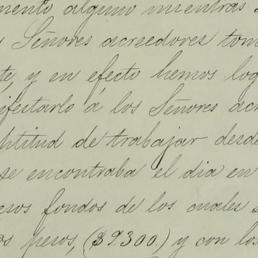 mento alguno mientras
Señores acreedores tom
te, y en efecto hemos log
ifestarlo á los Señores acr
ptitud de trabajar desde
se encontraba el dia en
esos fondos de los cuales
os pesos, ($9300.) y con los